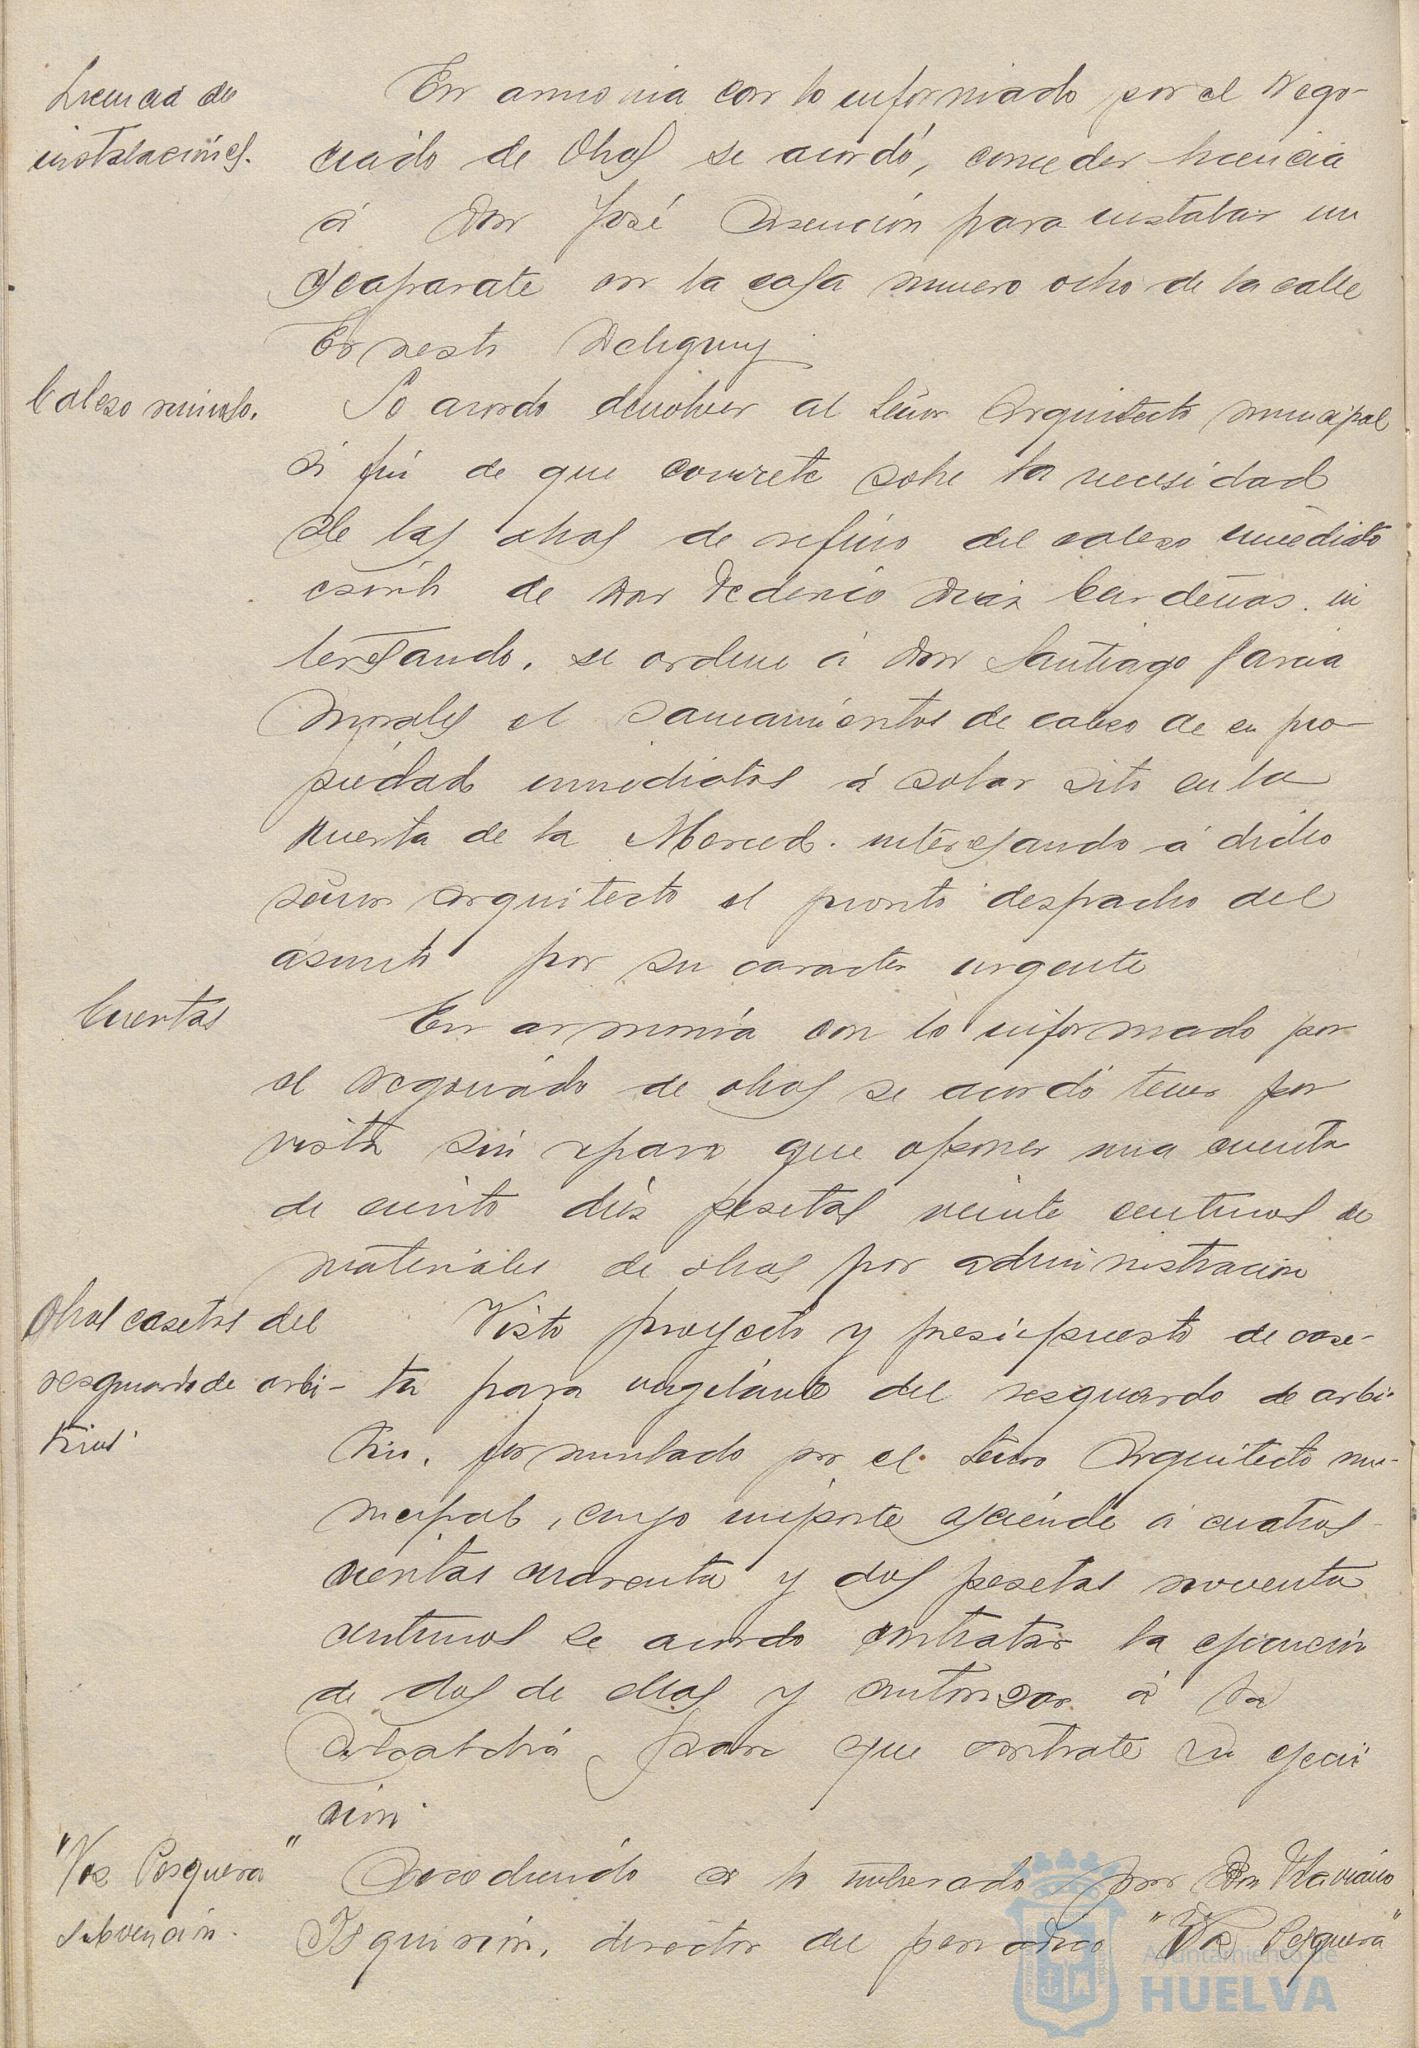 Licencia de
instalaciónes.
En armonia con lo informado por el Nego-
ciado de Obras se acordó, conceder licencia
á Don José Asención para instalar un
escaparate en la casa numero ocho de la calle
Ernesto Deligny
Cabezo
Se acordo devolver al Señor Arquitecto municipal
á fin de que concrete sobre la necesidad
de las obras de refino del cabezo
escrito de Don Federico Diaz Cardeñas. in
teresando, se ordene á Don Santiago Garcia
Morales el saneamientos de cabezo de su pro-
piedad inmediatos á solar sito en la
Huerta de la Merced. interesando á dicho
señor arquitecto el pronto despacho del
asunto por su caracter urgente
Cuentas
En armonía con lo informado por
el negociado de obras se acordó tener por
vista sin reparo que oponer una cuenta
de ciento diés pesetas veinte centimos de
materiales de obras por administracion
Obras casetas del
resguardo de arbi-
trios.
Visto proyecto y presupuesto de case-
ta para vigilante del resguardo de arbi-
trios, formulado por el Señor Arquitecto mu-
nicipal, cuyo importe asciende á cuatros-
cientas cuarenta y dos pesetas noventa
centimos se acordo contratar la ejecución
de dos de ellas y autorizar á la
Alcaldia para que contrate su ejecu
cion.
"Voz Pesquera"
subvención.
Accediendo a lo por Don Flaviano
Isquirin, director del periodico "La Voz Pesquera"
Ayuntamiento de
HUELVA